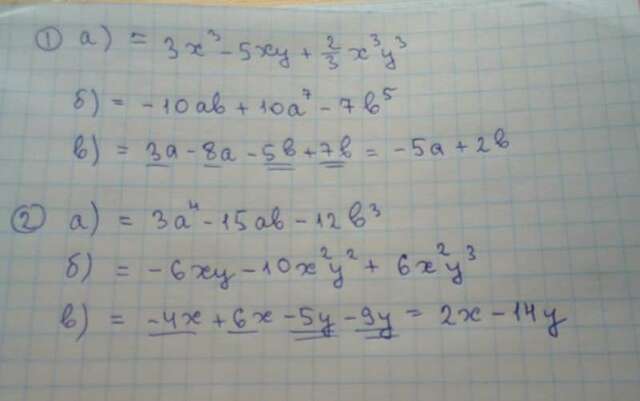 ① а) = 3x³ - 5xy + 2/3 x³y³
б) = -10ab + 10a⁷ - 7b⁵
в) = 3a - 8a - 5b + 7b = -5a + 2b
② а) = 3a⁴ - 15ab - 12b³
б) = -6xy - 10x²y² + 6x²y³
в) = -4x + 6x - 5y - 9y = 2x - 14y